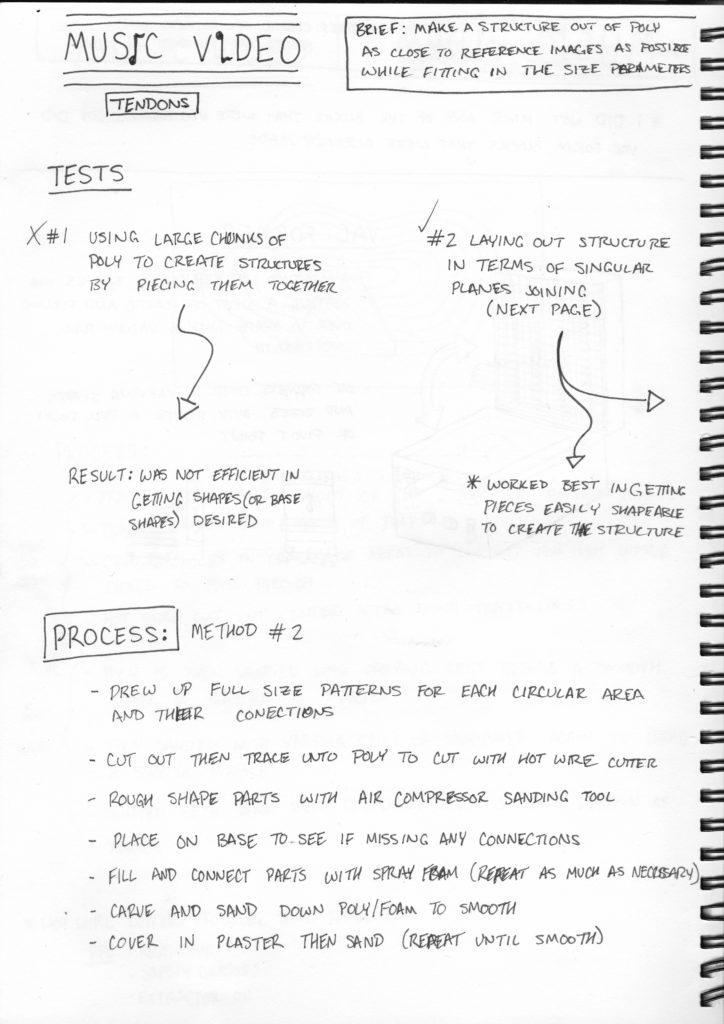 MUSIC VIDEO
TENDONS
BRIEF: MAKE A STRUCTURE OUT OF POLY
AS CLOSE TO REFERENCE IMAGES AS POSSIBLE
WHILE FITTING IN THE SIZE PARAMETERS
TESTS
X #1 USING LARGE CHUNKS OF
POLY TO CREATE STRUCTURES
BY PIECING THEM TOGETHER
RESULT: WAS NOT EFFICIENT IN
GETTING SHAPES (OR BASE
SHAPES) DESIRED
✓ #2 LAYING OUT STRUCTURE
IN TERMS OF SINGULAR
PLANES JOINING
(NEXT PAGE)
* WORKED BEST IN GETTING
PIECES EASILY SHAPEABLE
TO CREATE THE STRUCTURE
PROCESS: METHOD #2
- DREW UP FULL SIZE PATTERNS FOR EACH CIRCULAR AREA
AND THEIR CONECTIONS
- CUT OUT THEN TRACE UNTO POLY TO CUT WITH HOT WIRE CUTTER
- ROUGH SHAPE PARTS WITH AIR COMPRESSOR SANDING TOOL
- PLACE ON BASE TO SEE IF MISSING ANY CONNECTIONS
- FILL AND CONNECT PARTS WITH SPRAY FOAM (REPEAT AS MUCH AS NECESSARY)
- CARVE AND SAND DOWN POLY/FOAM TO SMOOTH
- COVER IN PLASTER THEN SAND (REPEAT UNTIL SMOOTH)